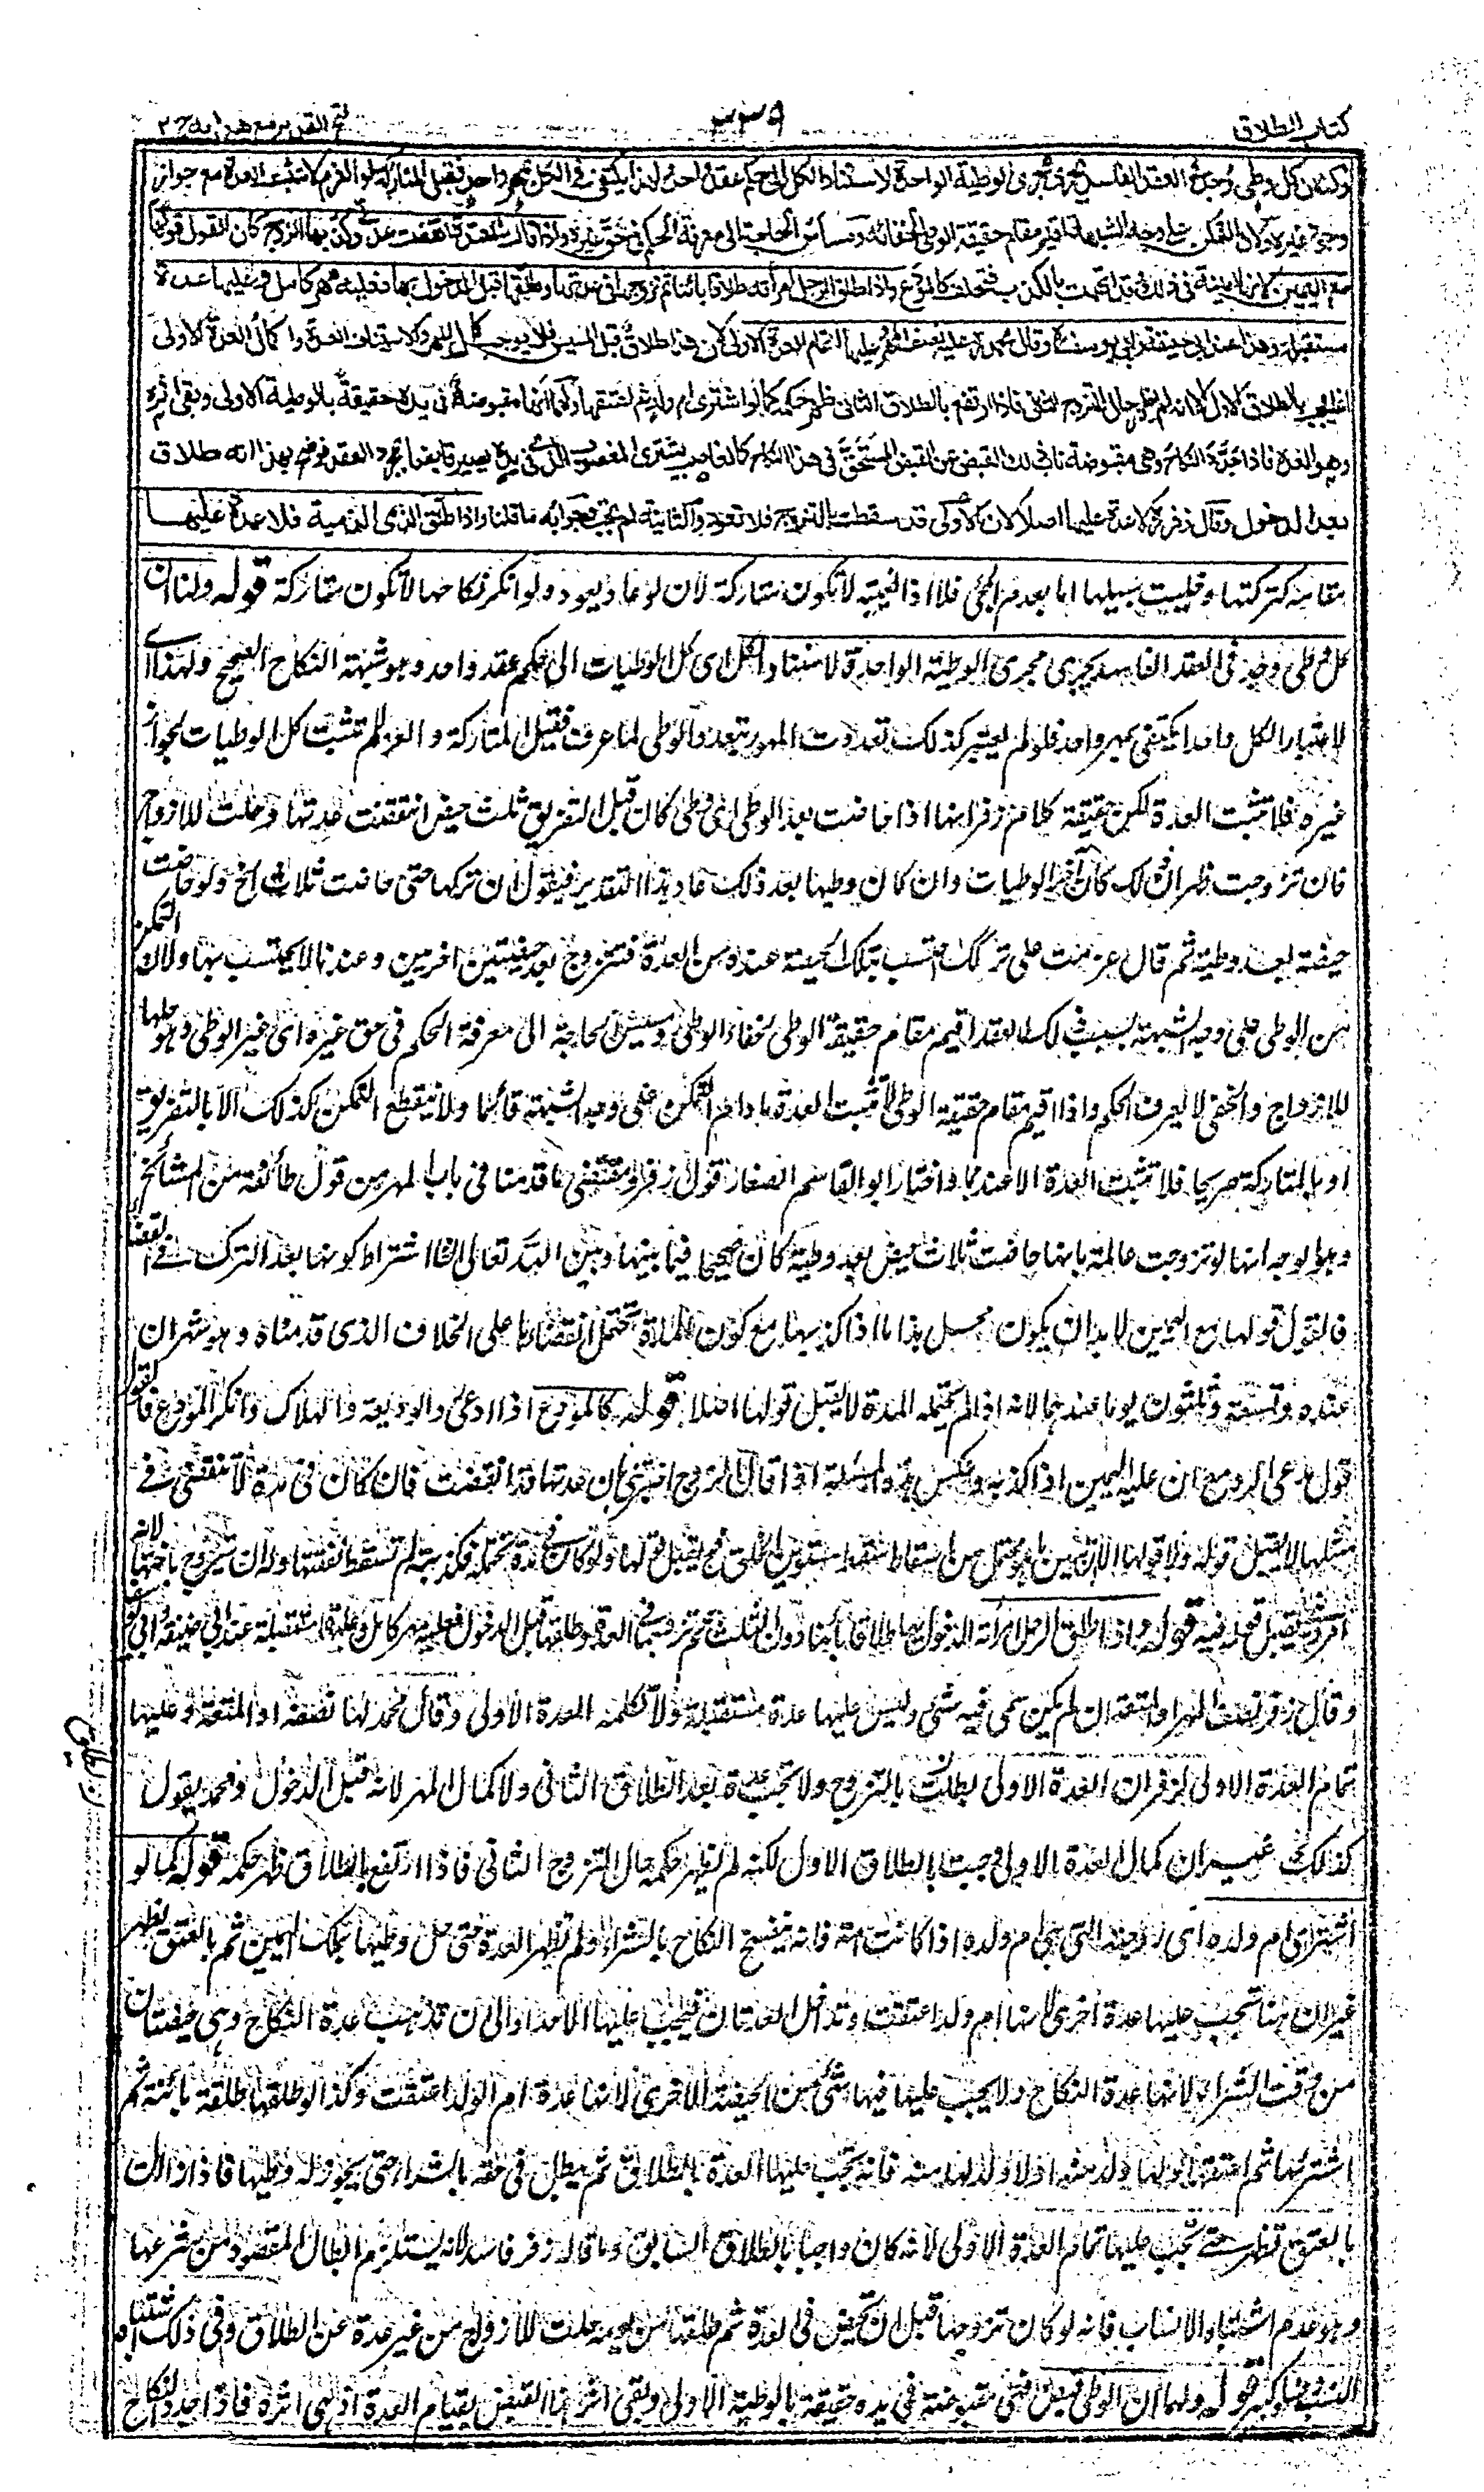 كتاب الطلاق
فتح القدير مع هداية ج ٢
ولنا ان كل وطي وجد في العقد الفاسد يجري مجرى الوطية الواحدة لاستناد الكل الى حكم عقد واحد ولهذا يكتفى في الكل بمهر واحد فقبل المتاركة او العزم لا تثبت العدة مع جواز
وجود غيره ولان التمكن على وجه الشبهة اقيم مقام حقيقة الوطي لخفائه ومساس الحاجة الى معرفة الحكم في حق غيره واذا قالت المعتدة انقضت عدتي وكذبها الزوج كان القول قولها
مع اليمين لانها امينة في ذلك وقد اتهمت بالكذب فتحلف كالمودع واذا طلق الرجل امرأته طلاقا بائنا ثم تزوجها في عدتها وطلقها قبل الدخول بها فعليه مهر كامل وعليها عدة
مستقبلة وهذا عند ابي حنيفة وابي يوسف وقال محمد عليه نصف المهر وعليها اتمام العدة الاولى لان هذا طلاق قبل المسيس فلا يوجب كمال المهر ولا استيناف العدة واكمال العدة الاولى
انما يجب بالطلاق الاول الا انه لم يظهر حال التزوج الثاني فاذا ارتفع بالطلاق الثاني ظهر حكمه كما لو اشترى ام ولده ثم اعتقها ولهما انها مقبوضة في يده حقيقة بالوطية الاولى وبقي اثره
وهو العدة فاذا جدد النكاح وهي مقبوضة ناب ذلك القبض عن القبض المستحق في هذا النكاح كالغاصب يشتري المغصوب الذي في يده يصير قابضا بمجرد العقد فوضح بهذا انه طلاق
بعد الدخول وقال زفر لا عدة عليها اصلا لان الاولى قد سقطت بالتزوج فلا تعود والثانية لم تجب وجوابه ما قلنا واذا طلق الذمي الذمية فلا عدة عليها
مقامه كتركتها وخليت سبيلها اما بعدم المجئ فلا اذ الغيبة لا تكون متاركة لان لو عاد يعود ولو انكر نكاحها لا تكون متاركة قوله ولنا ان
كل وطي وجد في العقد الفاسد يجري مجرى الوطية الواحدة لاستناد الكل اي كل الوطيات الى حكم عقد واحد وهو شبهة النكاح الصحيح ولهذا اي
لاعتبار الكل واحدا يكتفى بمهر واحد فلو لم يعتبر كذلك تعددت المهور بتعدد الوطي لما عرف فقبل المتاركة والعزم لم تثبت كل الوطيات لجواز
غيره فلا تثبت العدة لكن حقيقة كلام زفر انها اذا حاضت بعد الوطي اي وطي كان قبل التفريق ثلث حيض انقضت عدتها وحلت للازواج
فان تزوجت ظهر ان ذلك كان آخر الوطيات وان كان وطيها بعد ذلك عاد هذا التقدير فيقول ان تركها حتى حاضت ثلاث الخ ولو حاضت
حيضة بعد وطيه ثم قال عزمت على تركك احتسب بتلك الحيضة عنده من العدة فتتزوج بعد حيضتين اخريين وعندنا لا يحتسب بها ولان التمكن
من الوطي على وجه الشبهة بسبب ذلك العقد اقيم مقام حقيقة الوطي لخفاء الوطي ومسيس الحاجة الى معرفة الحكم في حق غيره اي غير الوطي وهو حلها
للازواج والخفي لا يعرف الحكم واذا اقيم مقام حقيقة الوطي لا تثبت العدة ما دام التمكن على وجه الشبهة قائما ولا ينقطع التمكن كذلك الا بالتفريق
او بالمتاركة صريحا فلا تثبت العدة الا عندهما واختار ابو القاسم الصفار قول زفر ومقتضى ما قدمنا في باب المهر من قول طائفة من المشائخ
وهو الوجه انها لو تزوجت عالمة بانها حاضت ثلاث حيض بعد وطيه كان صحيحا فيما بينها وبين الله تعالى انما اشتراط كونها بعد الترك في القضاء
فالقول قولها مع اليمين لابد ان يكون محمل هذا ما اذا كذبها مع كون المدة تحتمل انقضاءها على الخلاف الذي قدمناه وهو شهران
عنده وتسعة وثلثون يوما عندهما لانه اذا لم تحتمله المدة لا يقبل قولها اصلا قوله كالمودع اذا ادعى رد الوديعة والهلاك وانكر المودع فالقول
قول مدعي الرد مع ان عليه اليمين اذا كذبه وعكس هذه المسئلة اذا قال الزوج اخبرتني بان عدتها قد انقضت فان كان في مدة لا تنقضي في
مثلها لا يقبل قوله ولا قولها الا ان تبين ما هو محتمل من اسقاط سقط مستبين الخلق فح يقبل قولها ولو كان في مدة تحتمله فكذبته لم تسقط نفقتها وله ان يتزوج باختها لانه
امر ديني يقبل قوله فيه قوله واذا طلق الرجل امرأته المدخول بها طلاقا بائنا دون الثلث ثم تزوجها في العدة وطلقها قبل الدخول فعليه مهر كامل وعليها عدة مستقبلة عند ابي حنيفة وابي يوسف
وقال زفر نصف المهر او المتعة ان لم يكن سمى فيه شئ وليس عليها عدة مستقبلة ولا تكملة العدة الاولى وقال محمد لها نصفه او المتعة وعليها
تمام العدة الاولى لزفر ان العدة الاولى بطلت بالتزوج ولا تجب عدة بعد الطلاق الثاني ولا كمال المهر لانه قبل الدخول ومحمد يقول
كذلك غير ان كمال العدة الاولى وجبت بالطلاق الاول لكنه لم يظهر حكمه حال التزوج الثاني فاذا ارتفع بالطلاق ظهر حكمه قوله كما لو
اشترى ام ولده اي زوجته التي هي ام ولده اذا كانت امة فانه ينفسخ النكاح بالشراء ولم تظهر العدة حتى حل وطيها بملك اليمين ثم بالعتق يظهر
غير ان هنا تجب عليها عدة اخرى لانها ام ولد اعتقت وتداخل العدتان فيجب عليها الاحداد الى ان تذهب عدة النكاح وهي حيضتان
من وقت الشراء لانها عدة النكاح ولا يجب عليها فيها شئ من الحيضة الاخرى لانها عدة ام الولد اعتقت وكذا لو طلقها طلقة بائنة ثم
اشتريها ثم اعتقها ولها ولد منه او لا ولد لها منه فانه تجب عليها العدة بالطلاق ثم يبطل في حقه بالشراء حتى يجوز له وطيها فاذا زالت
بالعتق تظهر حتى يجب عليها تمام العدة الاولى لانه كان واجبا بالطلاق السابق وما قاله زفر فاسد لانه يستلزم ابطال المقصود من شرعها
وهو عدم اشتباه الانساب فانه لو كان تزوجها قبل ان تحيض في العدة ثم طلقها من يومه حلت للازواج من غير عدة عن الطلاق وفي ذلك اشتباه
النسب قوله ولهما ان الوطي قبض فهي مقبوضة في يده حقيقة بالوطية الاولى وبقي اثر هذا القبض بقيام العدة اذ هي اثره فاذا جدد النكاح